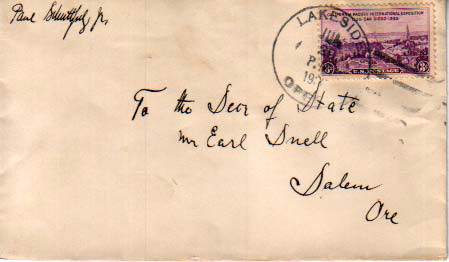 Paul Jr
LAKESIDE
JUL
P.M.
193
ORE
CALIFORNIA PACIFIC INTERNATIONAL EXPOSITION
SAN DIEGO 1935
3¢ U.S. POSTAGE 3¢
To the Secr of State
mr Earl Snell
Salem
Ore